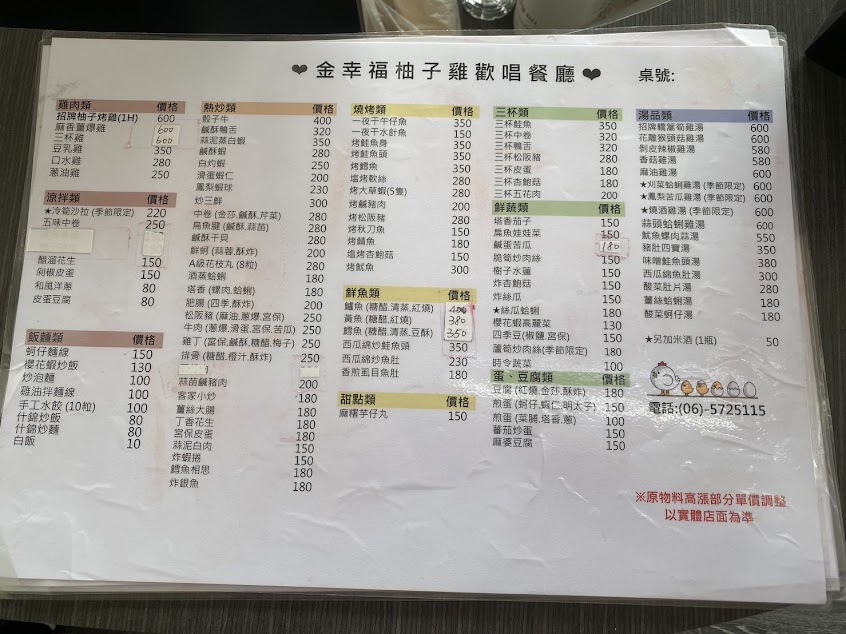 ❤金幸福柚子雞歡唱餐廳❤
桌號:
雞肉類 價格
招牌柚子烤雞(1H) 600
麻香薑爆雞 600
三杯雞 600
豆乳雞 350
口水雞 280
蔥油雞 250
涼拌類 價格
★冷筍沙拉(季節限定) 220
五味中卷 250
醋溜花生 150
剁椒皮蛋 150
和風洋蔥 80
皮蛋豆腐 80
飯麵類 價格
蚵仔麵線 150
櫻花蝦炒飯 130
炒泡麵 100
雞油拌麵線 100
手工水餃(10粒) 100
什錦炒飯 80
什錦炒麵 80
白飯 10
熱炒類 價格
骰子牛 400
鹹酥鴨舌 320
蒜泥蒸白蝦 350
鹹酥蝦 280
白灼蝦 250
滑蛋蝦仁 200
鳳梨蝦球 230
炒三鮮 300
中卷(金莎.鹹酥.芹菜) 280
烏魚腱(鹹酥.蒜苗) 280
鹹酥干貝 280
鮮蚵(蒜蓉.酥炸) 200
A級花枝丸(8粒) 280
酒蒸蛤蜊 180
塔香(螺肉.蛤蜊) 180
肥腸(四季.酥炸) 200
松阪豬(麻油.蔥爆.宮保) 250
牛肉(蔥爆.滑蛋.宮保.苦瓜) 250
雞丁(宮保.鹹酥.糖醋.梅子) 250
排骨(糖醋.橙汁.酥炸) 250
蒜苗鹹豬肉 200
客家小炒 180
薑絲大腸 180
丁香花生 180
宮保皮蛋 180
蒜泥白肉 150
炸蝦捲 150
鱈魚相思 180
炸銀魚 180
燒烤類 價格
一夜干午仔魚 350
一夜干水針魚 150
烤鮭魚身 350
烤鮭魚頭 350
烤鱈魚 350
塩烤軟絲 280
烤大草蝦(5隻) 280
烤鹹豬肉 200
烤松阪豬 280
烤秋刀魚 150
烤鯖魚 180
塩烤杏鮑菇 150
烤魷魚 300
鮮魚類 價格
鱸魚(糖醋.清蒸.紅燒) 400
黃魚(糖醋.紅燒) 380
鱈魚(糖醋.清蒸.豆酥) 350
西瓜綿炒鮭魚頭 350
西瓜綿炒魚肚 230
香煎虱目魚肚 180
甜點類 價格
麻糬芋仔丸 150
三杯類 價格
三杯鮭魚 350
三杯中卷 320
三杯鴨舌 320
三杯松阪豬 280
三杯皮蛋 180
三杯杏鮑菇 180
三杯五花肉 200
鮮蔬類 價格
塔香茄子 150
扁魚娃娃菜 150
鹹蛋苦瓜 180
脆筍炒肉絲 150
樹子水蓮 150
炸杏鮑菇 150
炸絲瓜 150
★絲瓜蛤蜊 180
櫻花蝦高麗菜 130
四季豆(椒鹽.宮保) 150
蘆筍炒肉絲(季節限定) 180
時令蔬菜 100
蛋、豆腐類 價格
豆腐(紅燒.金莎.酥炸) 180
煎蛋(蚵仔.蝦仁.明太子) 150
煎蛋(菜脯.塔香.蔥) 100
蕃茄炒蛋 150
麻婆豆腐 150
湯品類 價格
招牌轎篙筍雞湯 600
花雕猴頭菇雞湯 600
剝皮辣椒雞湯 580
香菇雞湯 580
麻油雞湯 600
★刈菜蛤蜊雞湯(季節限定) 600
★鳳梨苦瓜雞湯(季節限定) 600
★燒酒雞湯(季節限定) 600
蒜頭蛤蜊雞湯 600
魷魚螺肉蒜湯 550
豬肚四寶湯 350
味噌鮭魚頭湯 380
西瓜綿魚肚湯 300
酸菜肚片湯 280
薑絲蛤蜊湯 180
酸菜蚵仔湯 180
★另加米酒(1瓶) 50
電話:(06)-5725115
※原物料高漲部分單價調整
以實體店面為準